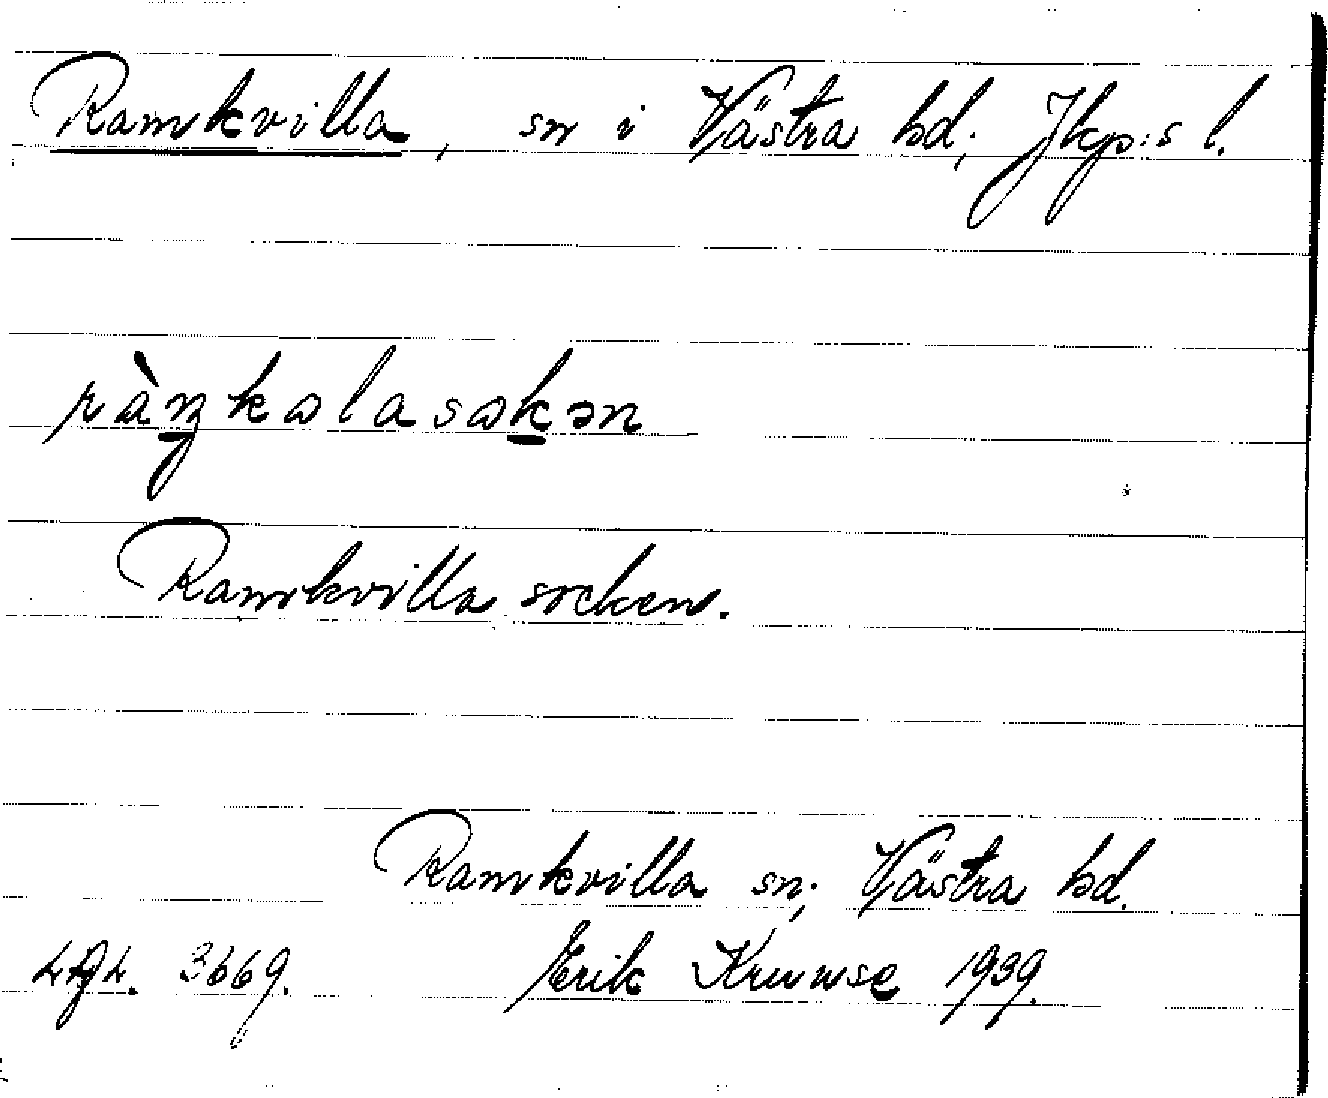 Ramkvilla, sn i Västra hd; Jkp:s l.
Ramkvilla socken.
Ramkvilla sn; Västra hd.
3669. Erik 1939.